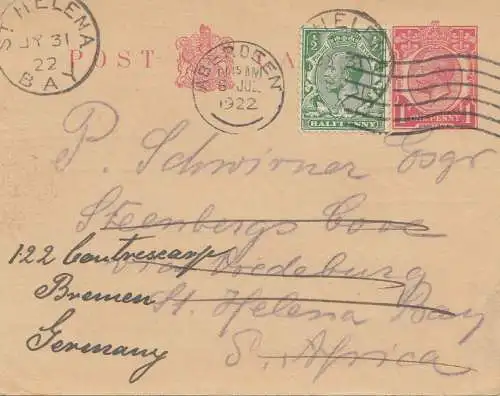 ST HELENA
JY 31
22
BAY
POST CA
ABERDEEN
15 AM
8 JUL
1922
HALFPENNY
HELENA
ONE PENNY
P. Schwirner Esqr
Steenbergs Cove
via Vredeburg
St. Helena Bay
S. Africa
122 Contrescarpe
Bremen
Germany